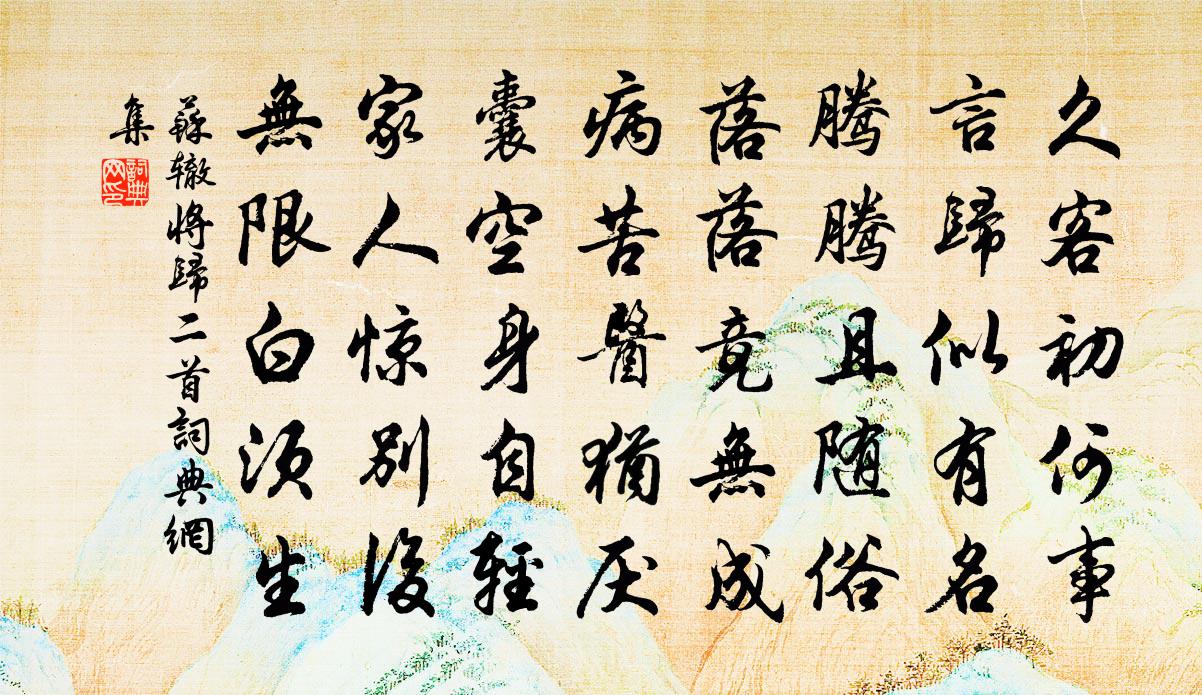 久客初何事
言歸似有名
騰騰且随俗
落落竟無成
病苦醫猶厌
囊空身自輕
家人惊别後
無限白须生
蘇辙将歸二首詞典網
集
詞典网印